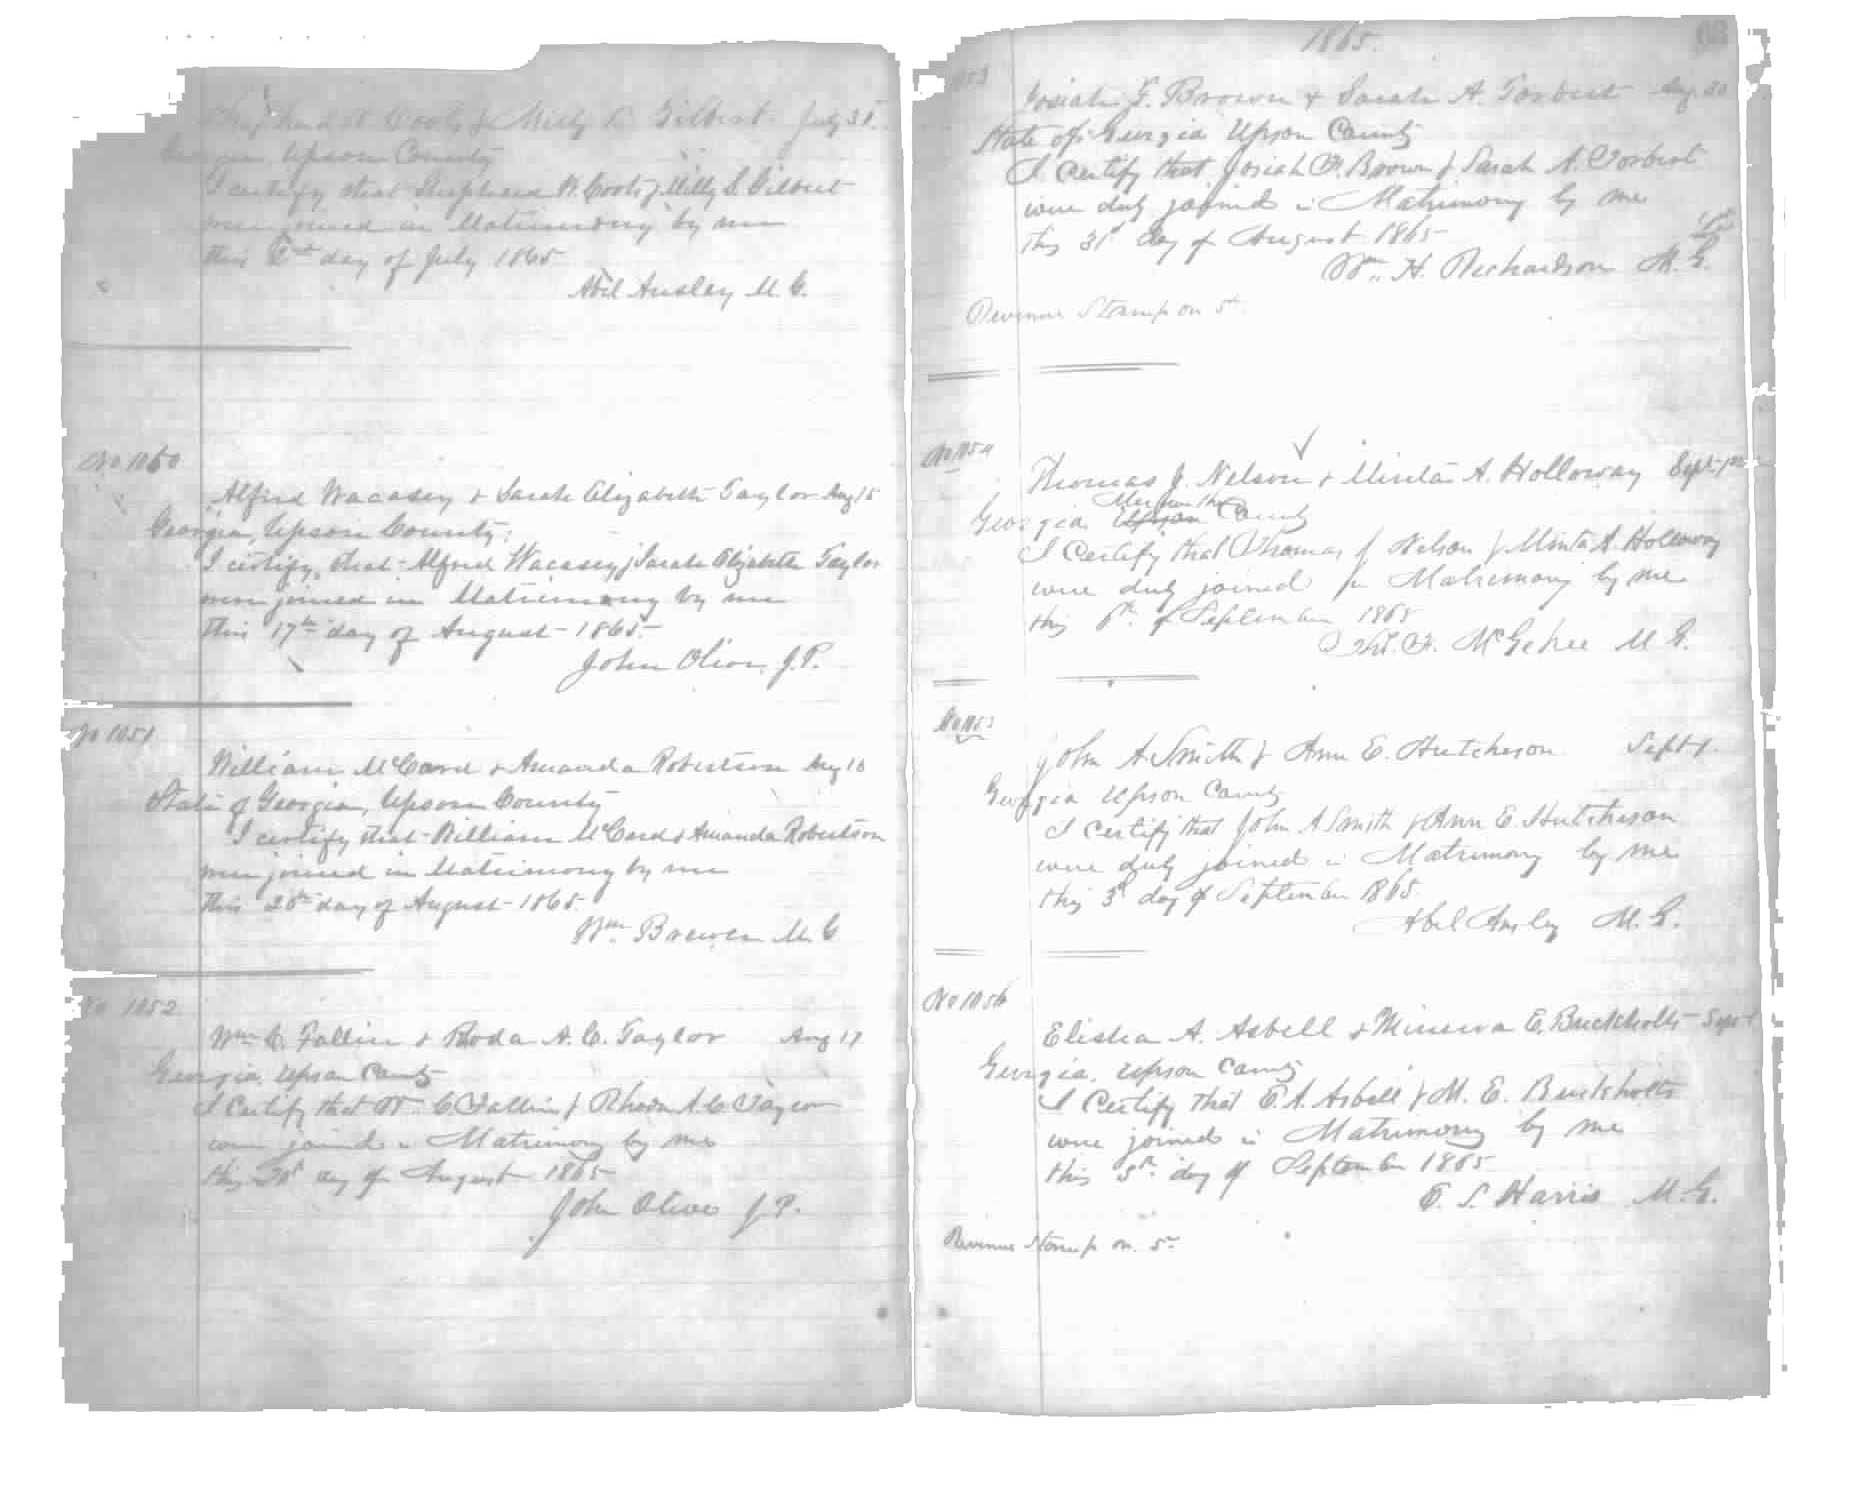 Shepherd W. Cook & Milly S. Gilbert July 31
Georgia Upson County
I certify that Shepherd W. Cook & Milly S. Gilbert
were joined in Matrimony by me
this day of July 1865
Abil Ansley M. G.
No 1050
Alfred Wacasey & Sarah Elizabeth Taylor Aug 15
Georgia, Upson County:
I certify, that Alfred Wacasey & Sarah Elizabeth Taylor
were joined in Matrimony by me
this 17th day of August 1865.
John Oliver, J. P.
No 1051
William McCard & Amanda Robertson Aug 10
State of Georgia, Upson County
I certify that William McCard & Amanda Robertson
were joined in Matrimony by me
this 20th day of August 1865.
Wm Brewer M. G
No 1052
Wm C. Fallin & Rhoda A. C. Taylor Aug 17
Georgia, Upson County
I Certify that W. C Fallin & Rhoda A. C Taylor
were joined in Matrimony by me
this day of August 1865
John Oliver J. P.
1865.
1053
Josiah F. Brown & Sarah A. Torbert Aug 30
State of Georgia Upson County
I Certify that Josiah F. Brown & Sarah A. Torbert
were duly joined in Matrimony by me
this 31st day of August 1865
Wm. H. Richardson M. G.
Revenue Stamp on 5ct
No 1054
Thomas J. Nelson & Minta A. Holloway Sept 1st
Georgia Upson Meriwether County
I Certify that Thomas J Nelson & Minta A. Holloway
were duly joined in Matrimony by me
this 6th of September 1865
F. McGehee M G.
No 1055
John A. Smith & Ann E. Hutcheson Sept 1.
Georgia Upson County
I Certify that John A Smith & Ann E. Hutcheson
were duly joined in Matrimony by me
this 3d day of September 1865.
Abel Ansley M. G.
No 1056
Elisha A. Asbell & Minerva E. Buckholts Sept
Georgia. Upson County
I Certify that E. A. Asbell & M. E. Buckholts
were joined in Matrimony by me
this 5th day of September 1865
E. S. Harris M. G.
Revenue Stamp on. 5ct